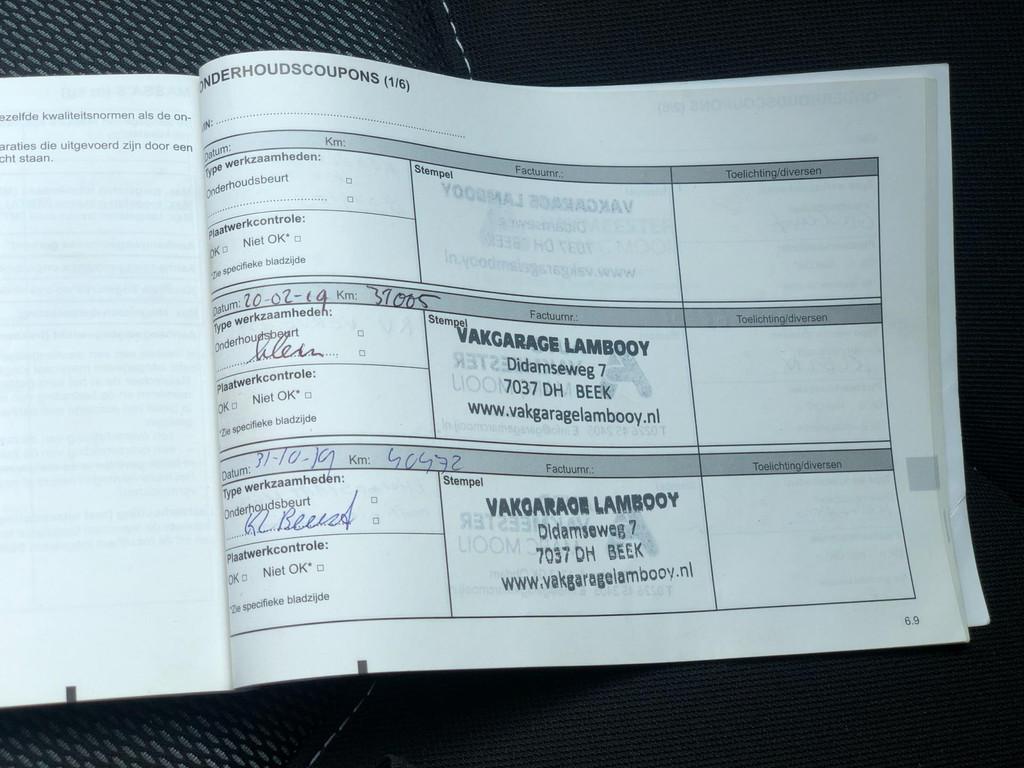 ezelfde kwaliteitsnormen als de on-
araties die uitgevoerd zijn door een
cht staan.
ONDERHOUDSCOUPONS (1/6)
VIN:
Datum: Km: Factuurnr.: Toelichting/diversen
Type werkzaamheden: Stempel
Onderhoudsbeurt □
□
Plaatwerkcontrole:
OK □ Niet OK* □
*Zie specifieke bladzijde
Datum: 20-02-19 Km: 31005 Factuurnr.: Toelichting/diversen
Type werkzaamheden: Stempel
Onderhoudsbeurt □
Klein □
Plaatwerkcontrole:
OK □ Niet OK* □
*Zie specifieke bladzijde
VAKGARAGE LAMBOOY
Didamseweg 7
7037 DH BEEK
www.vakgaragelambooy.nl
Datum: 31-10-19 Km: 40472 Factuurnr.: Toelichting/diversen
Type werkzaamheden: Stempel
Onderhoudsbeurt □
Kl Beurt □
Plaatwerkcontrole:
OK □ Niet OK* □
*Zie specifieke bladzijde
VAKGARAGE LAMBOOY
Didamseweg 7
7037 DH BEEK
www.vakgaragelambooy.nl
6.9